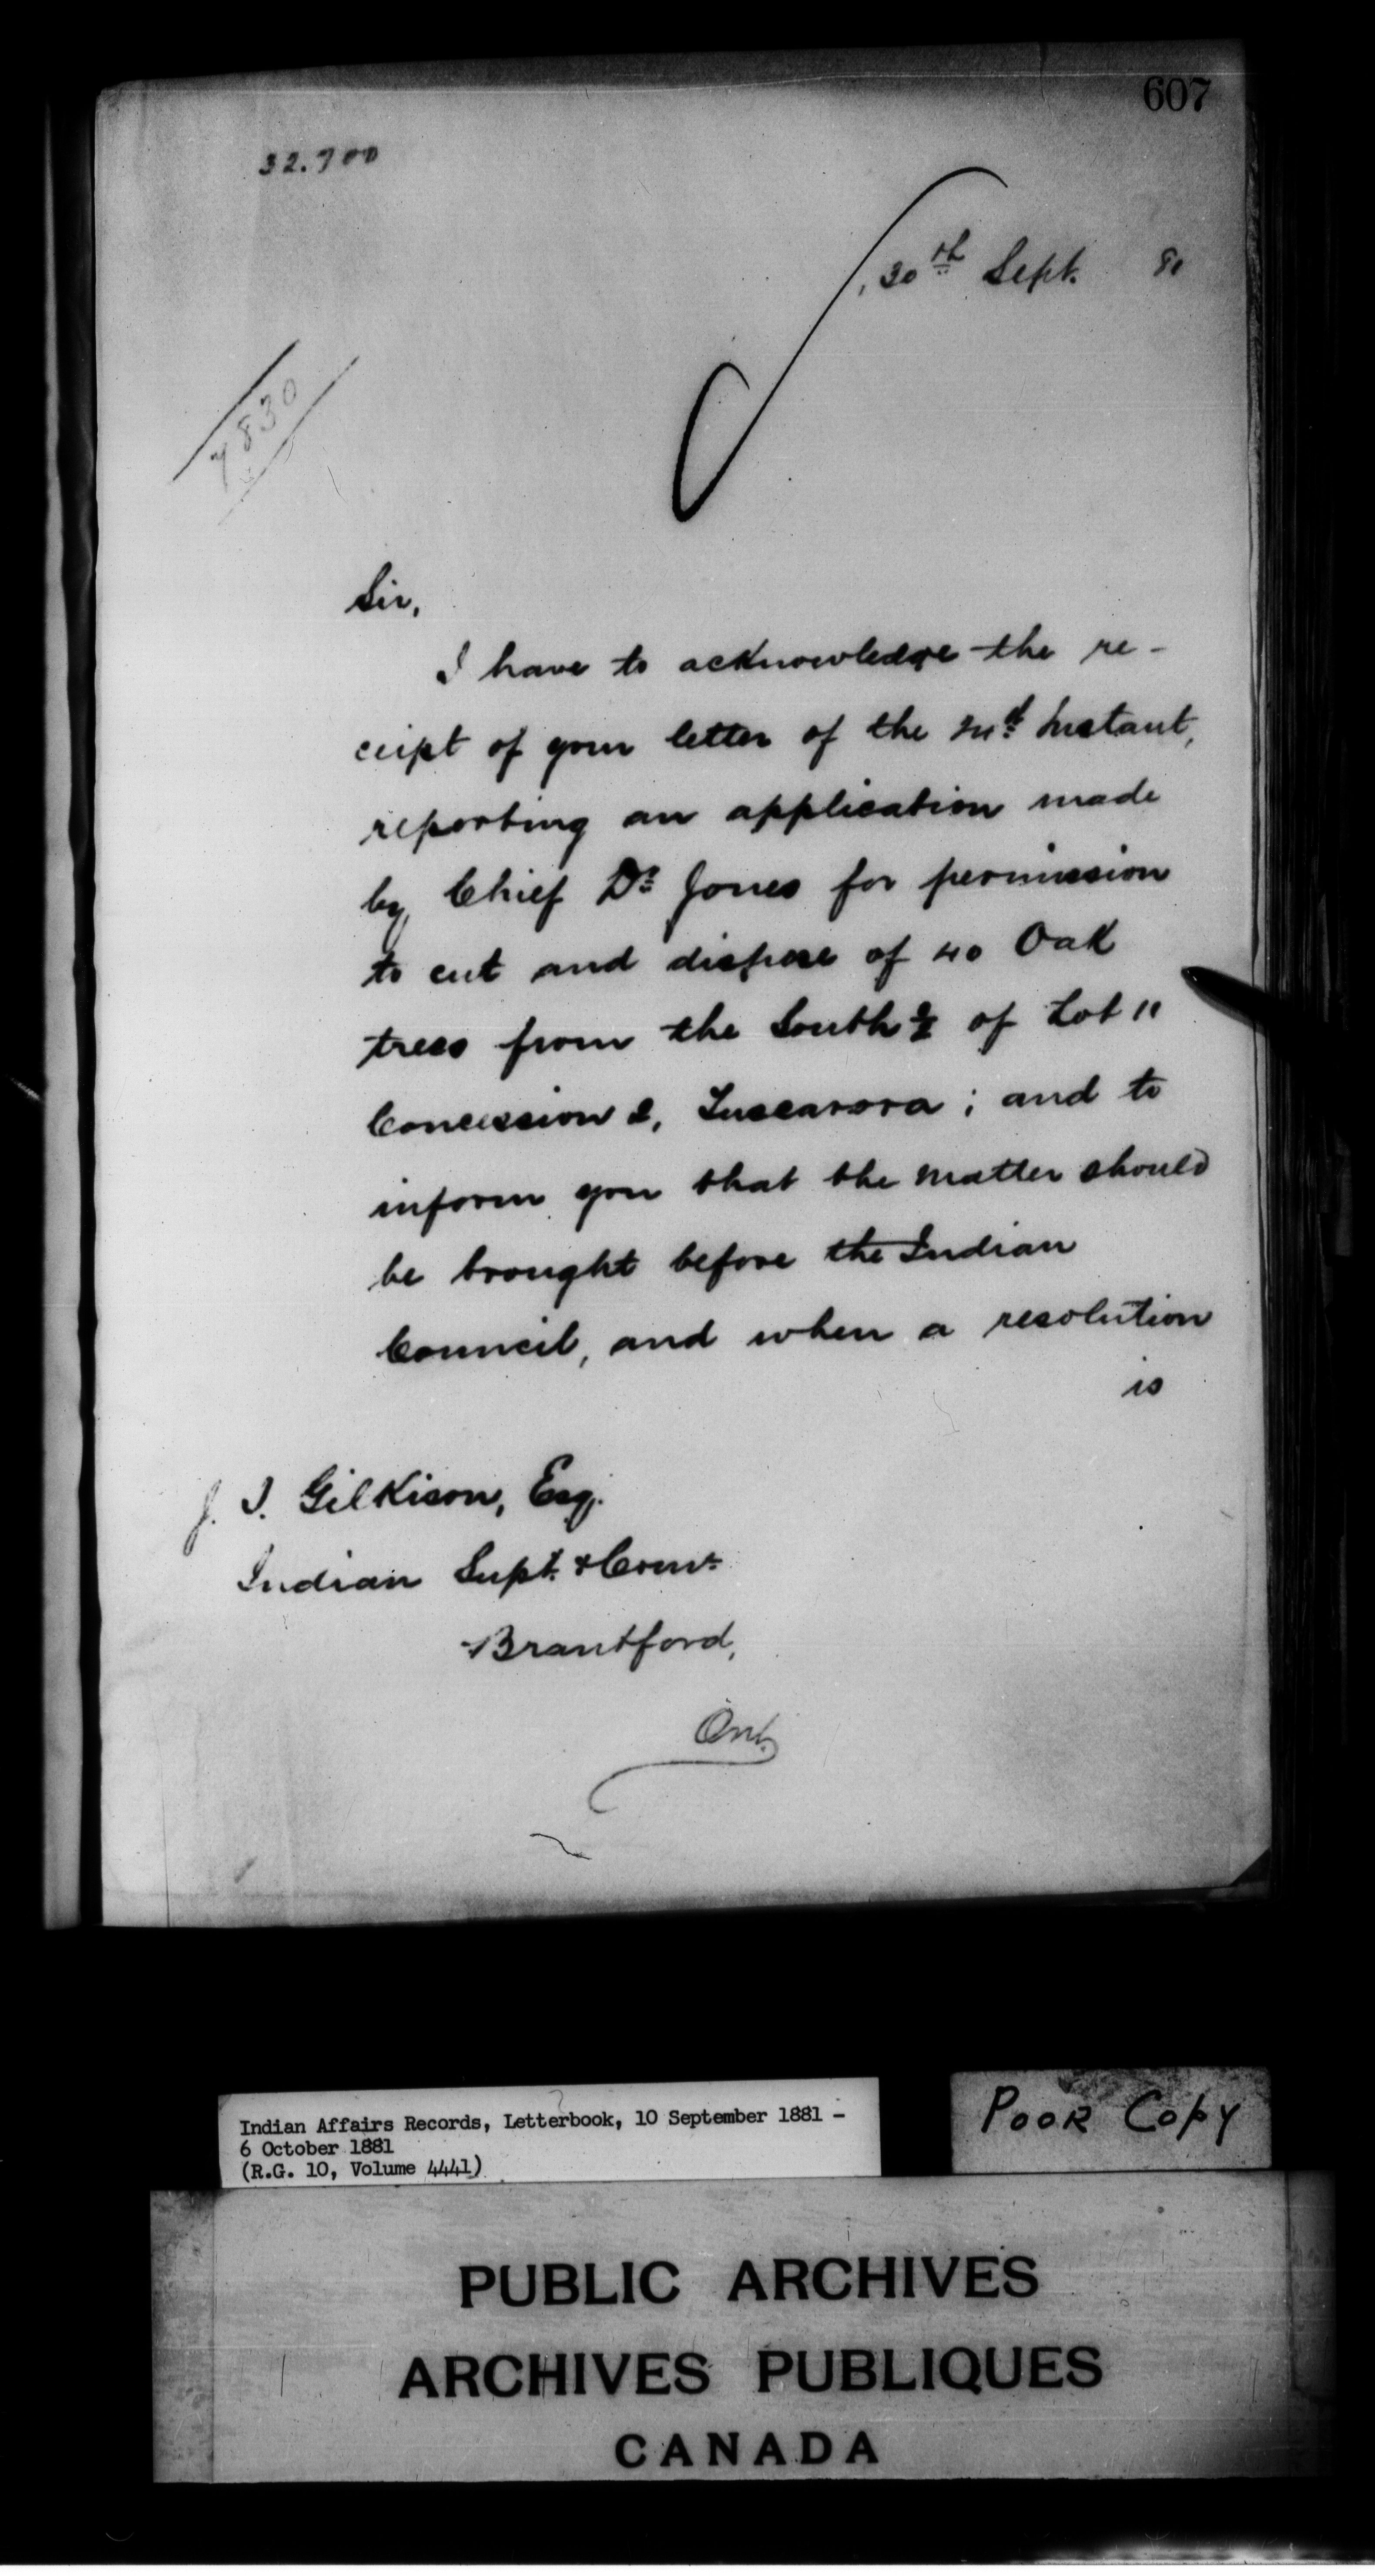 607
32.700
30th Sept. 81
7830
Sir,
I have to acknowledge the re-
ceipt of your letter of the Instant,
reporting an application made
by Chief Dr. Jones for permission
to cut and dispose of 40 Oak
trees from the South ½ of Lot 11
Concession 2, Tuscarora; and to
inform you that the matter should
be brought before the Indian
Council, and when a resolution
is
J. T. Gilkison, Esq.
Indian Supt. & Comr.
Brantford,
Ont.
Indian Affairs Records, Letterbook, 10 September 1881 -
6 October 1881
(R.G. 10, Volume 4441)
POOR COPY
PUBLIC ARCHIVES
ARCHIVES PUBLIQUES
CANADA